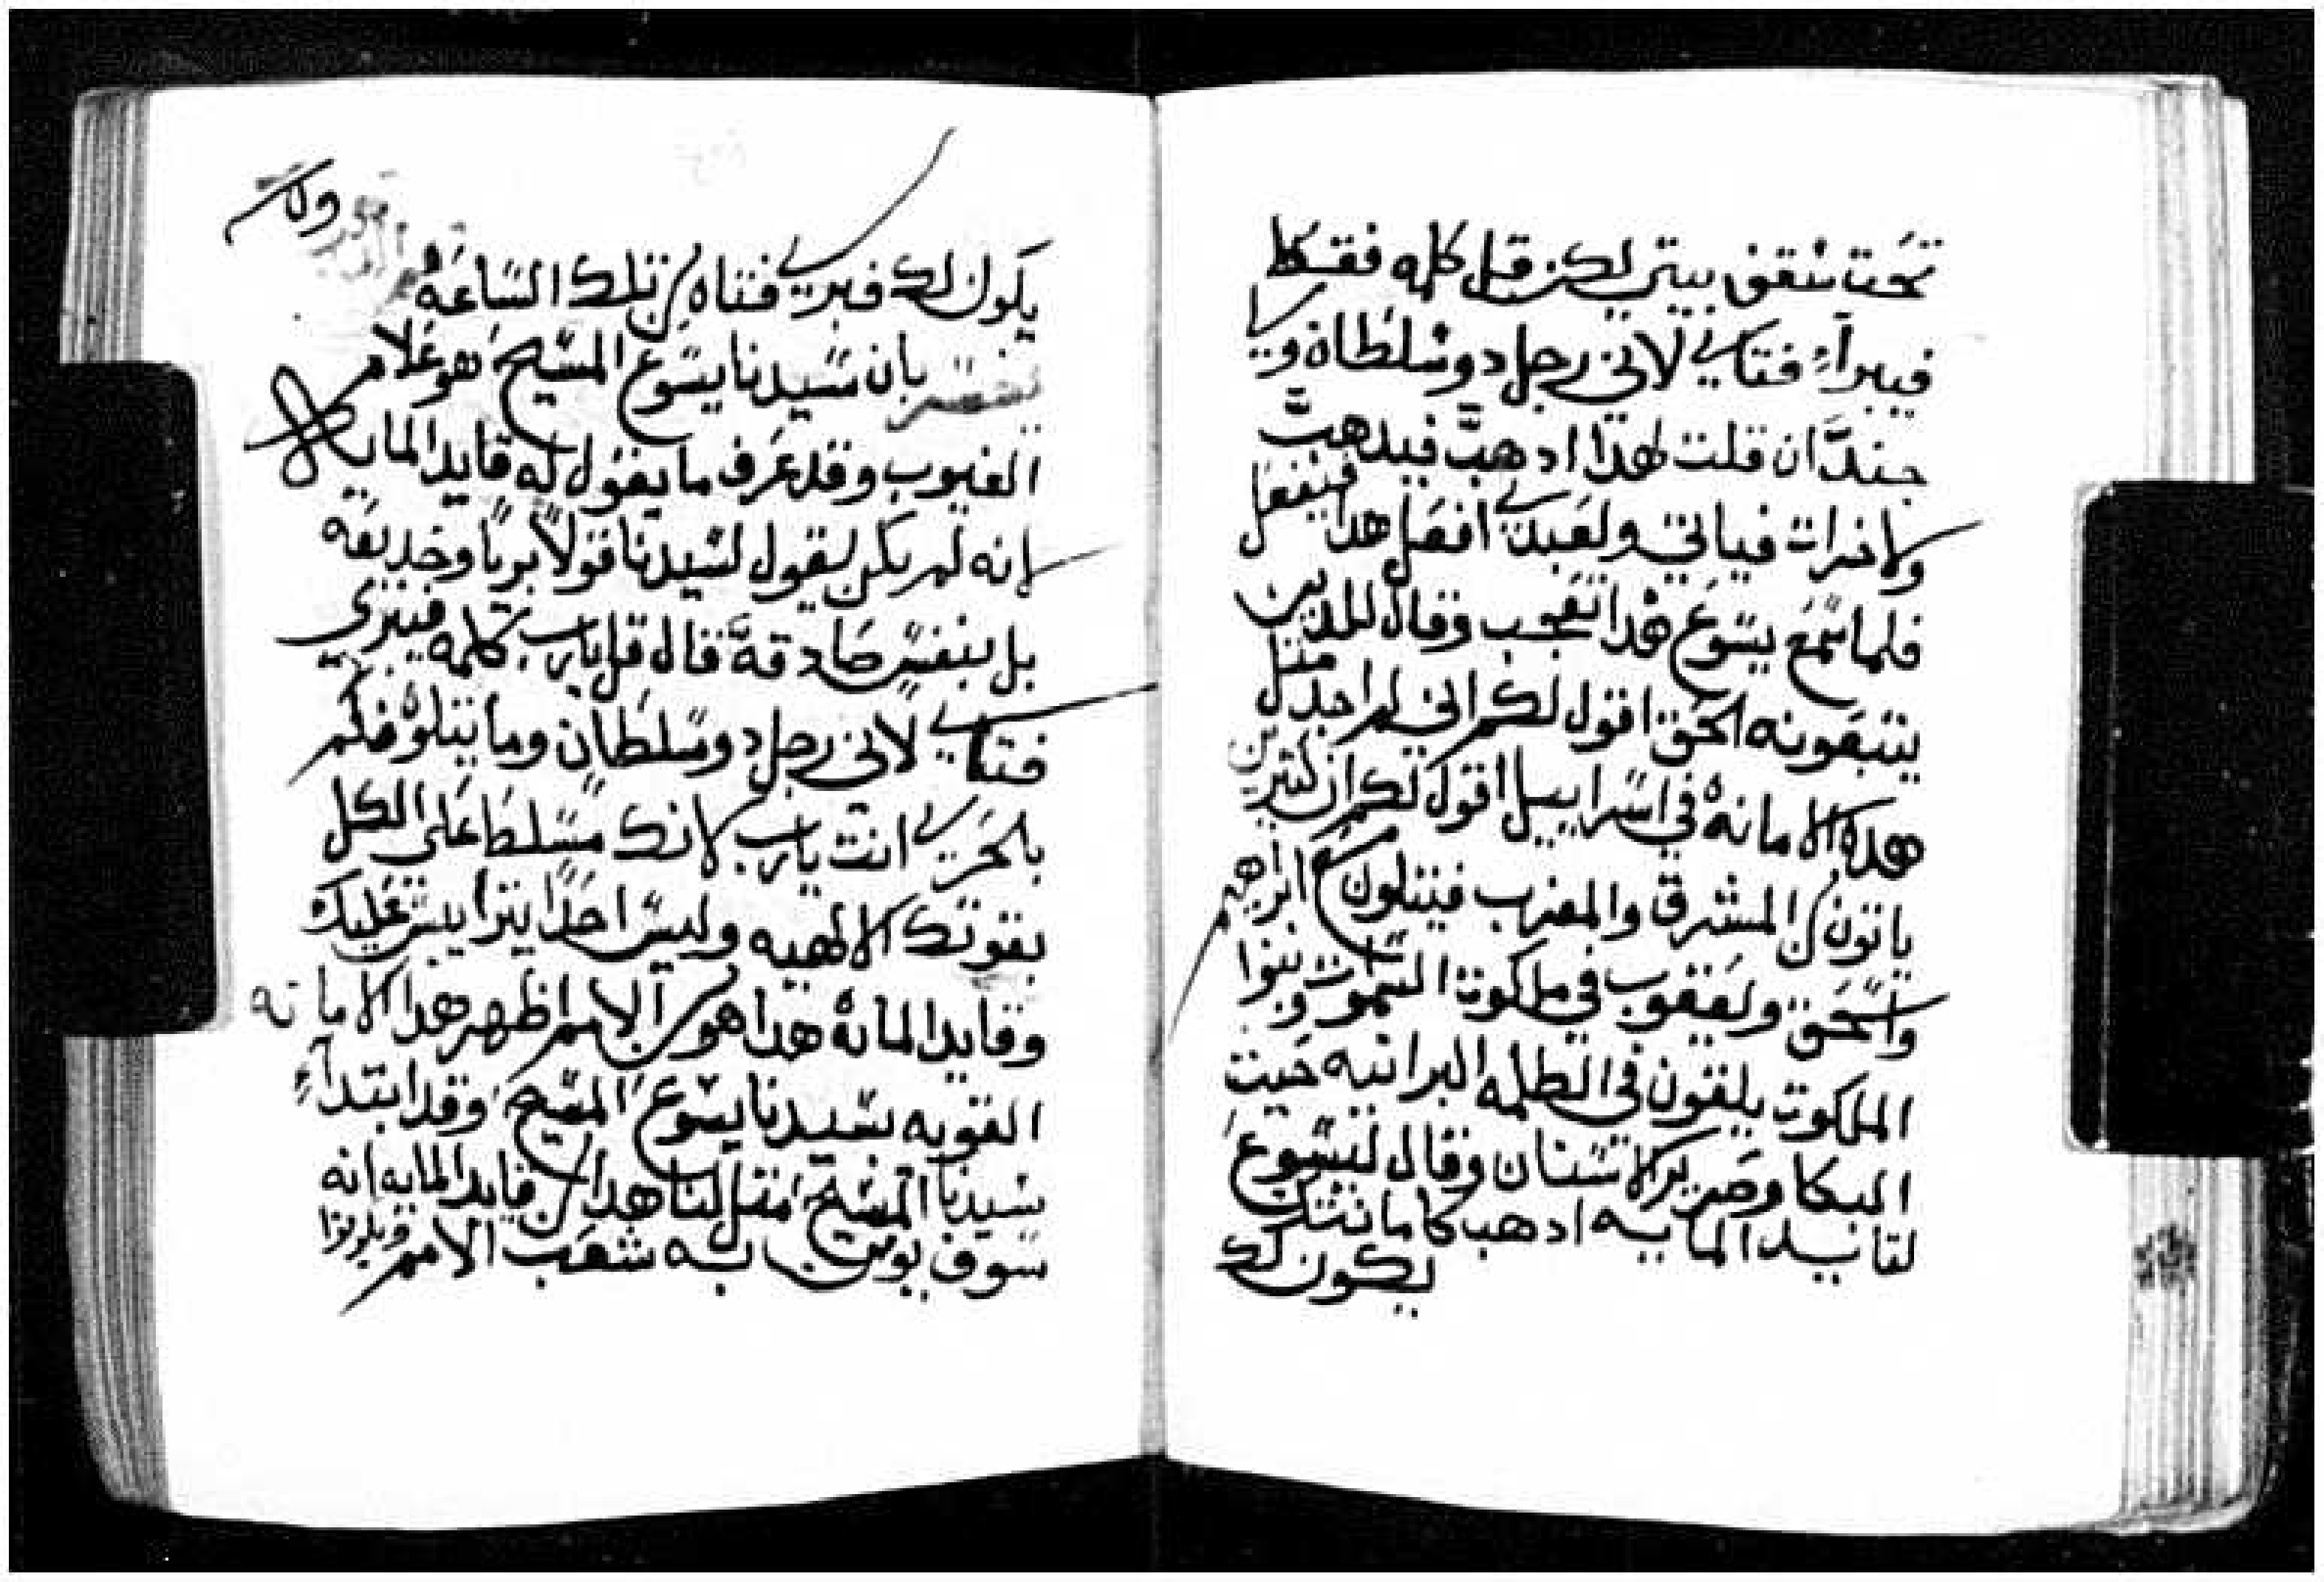 تحت سقف بيتي لكن قل كلمه فقط
فيبراء فتاي لاني رجل دو سلطان ويا
جند ان قلت لهدا ادهب فيدهب
ولاخرات فياتي ولعبدي افعل هدا فيفعل
فلما سمع يسوع هدا تعجب وقال للدين
يتبعونه الحق اقول لكم اني لم اجد مثل
هده الامانه في اسراييل اقول لكم ان كثيرين
ياتون من المشرق والمغرب فيتلون مع ابراهيم
واسحق ويعقوب في ملكوت السموات وبنوا
الملكوت يلقون في الظلمه البرانيه حيت
البكا وصرير الاسنان وقال ليسوع
لقايد المايه ادهب كاما نتك
يكون لك
ولا
يكون لك فبري فتاه من تلك الساعه
بان سيدنا يسوع المسيح هو علام
الغيوب وقد عرف ما يقول له قايد المايه
انه لم يكن يقول لسيدنا قولا بريا وخديعه
بل بنفس صادقه قال قل يارب كلمه فيبري
فتاي لاني رجل دو سلطان وما يتلوه فكم
بالحري انت يارب لانك مسلط علي الكل
بقوتك الالهيه وليس احدا يترايس عليك
وقايد المايه هدا هو من الامم اظهر هدا الامانه
القويه بسيدنا يسوع المسيح وقد ابتداء
سيدنا المسيح متل لنا هدا من قايد المايه انه
سوف يومن به شعب الامم